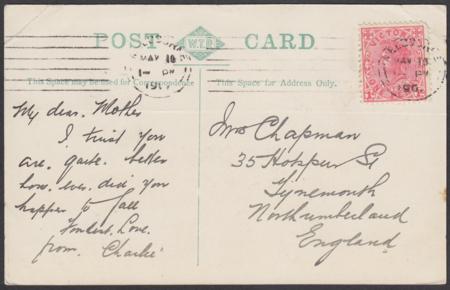 POST CARD
W.T.P.
VICTORIA
MAY 18
1- PM
This Space may be used for Correspondence
This Space for Address Only.
My dear. Mother
I trust you
are. quite. better
how. ever. did you
happen to fall
Fondest. Love.
from. Charlie
Mrs Chapman
35 Hopper St
Tynemouth
Northumberland
England